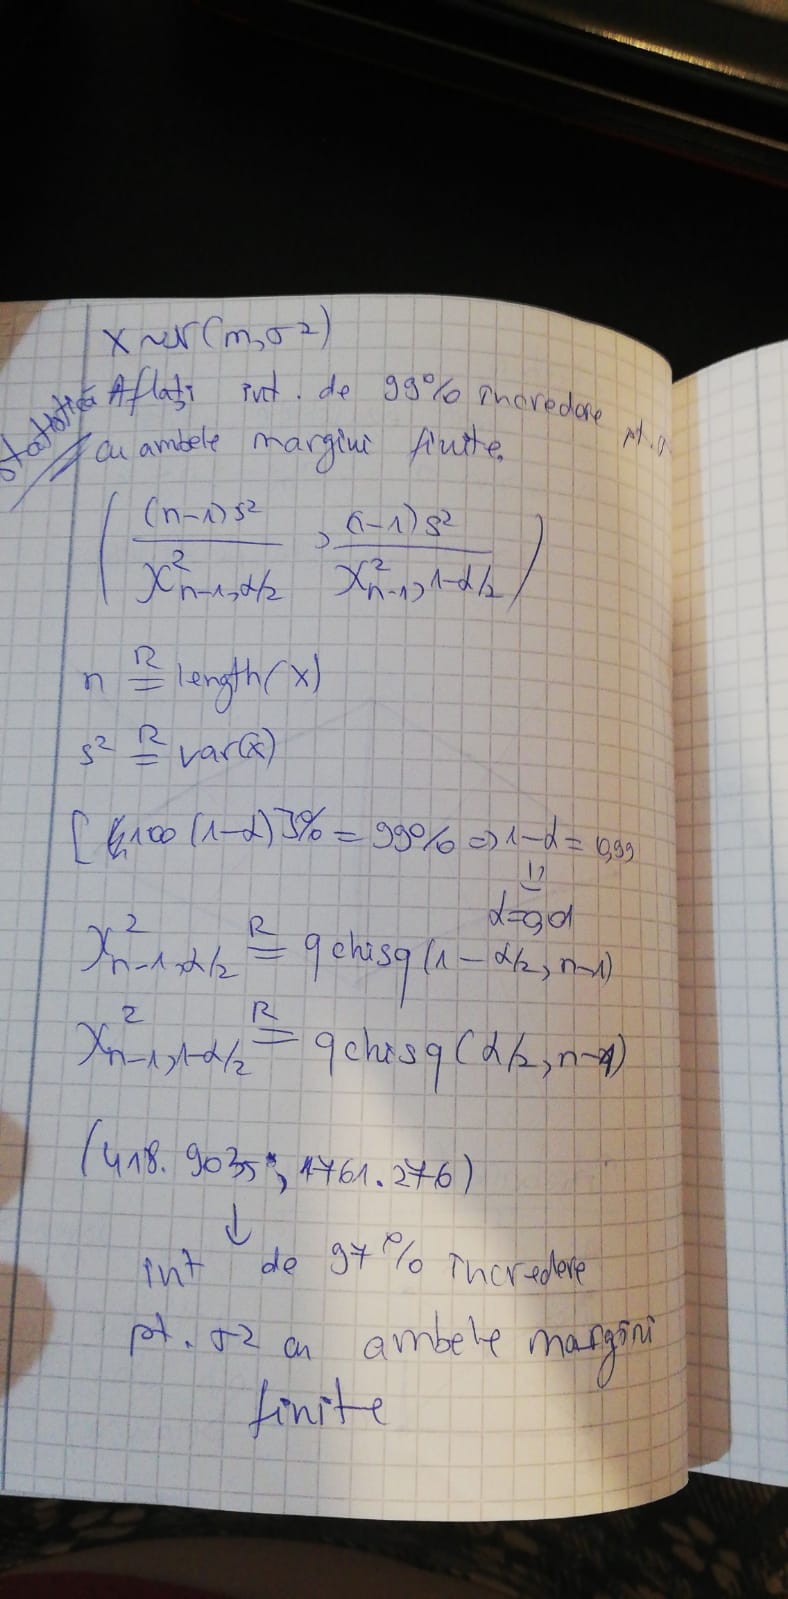 X ~ N(m, σ²)
Statistică Aflați int. de 99% încredere pt.
cu ambele margini finite.
( (n-1)s² / X²n-1,α/2 , (n-1)s² / X²n-1,1-α/2 )
n R= length(x)
s² R= var(x)
[100(1-α)]% = 99% => 1-α = 0,99
⇓
α=0,01
X²n-1,α/2 R= qchisq(1-α/2, n-1)
X²n-1,1-α/2 R= qchisq(α/2, n-1)
(418.9035; 1761.276)
↓
int de 97% încredere
pt. σ² cu ambele margini
finite